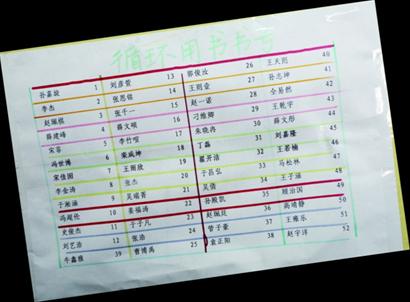 循环用书书号
孙嘉璇 1 刘彦萱 13 郭俊汝 26 王天阳 40
李杰 2 张思铭 14 王则壹 27 孙志坤 41
赵珮琪 3 张子一 15 赵一诺 28 仝易然 42
薛凌峰 4 薛文硕 16 刁维卿 29 王乾宇 43
宋蓉 5 李竹瑄 17 朱晓冉 30 薛文彤 44
冯世博 6 栾斌坤 18 丁磊 31 刘嘉隆 45
宋佳国 7 王雨欣 19 翟开浩 32 王若楠 46
李金涛 8 张杰 20 于昌弘 33 马松林 47
于湘涵 9 吴瑶菩 21 吴倩 34 王子涵 48
冯赵伦 10 姜福涛 22 孙殿凯 35 顾治国 49
史俊杰 11 于子凡 23 赵珮廷 36 高靖婷 50
刘艺浩 12 张浩 24 管子豪 37 王雍乐 51
牛鑫雅 39 曹博禹 25 袁正阳 38 赵宇洋 52